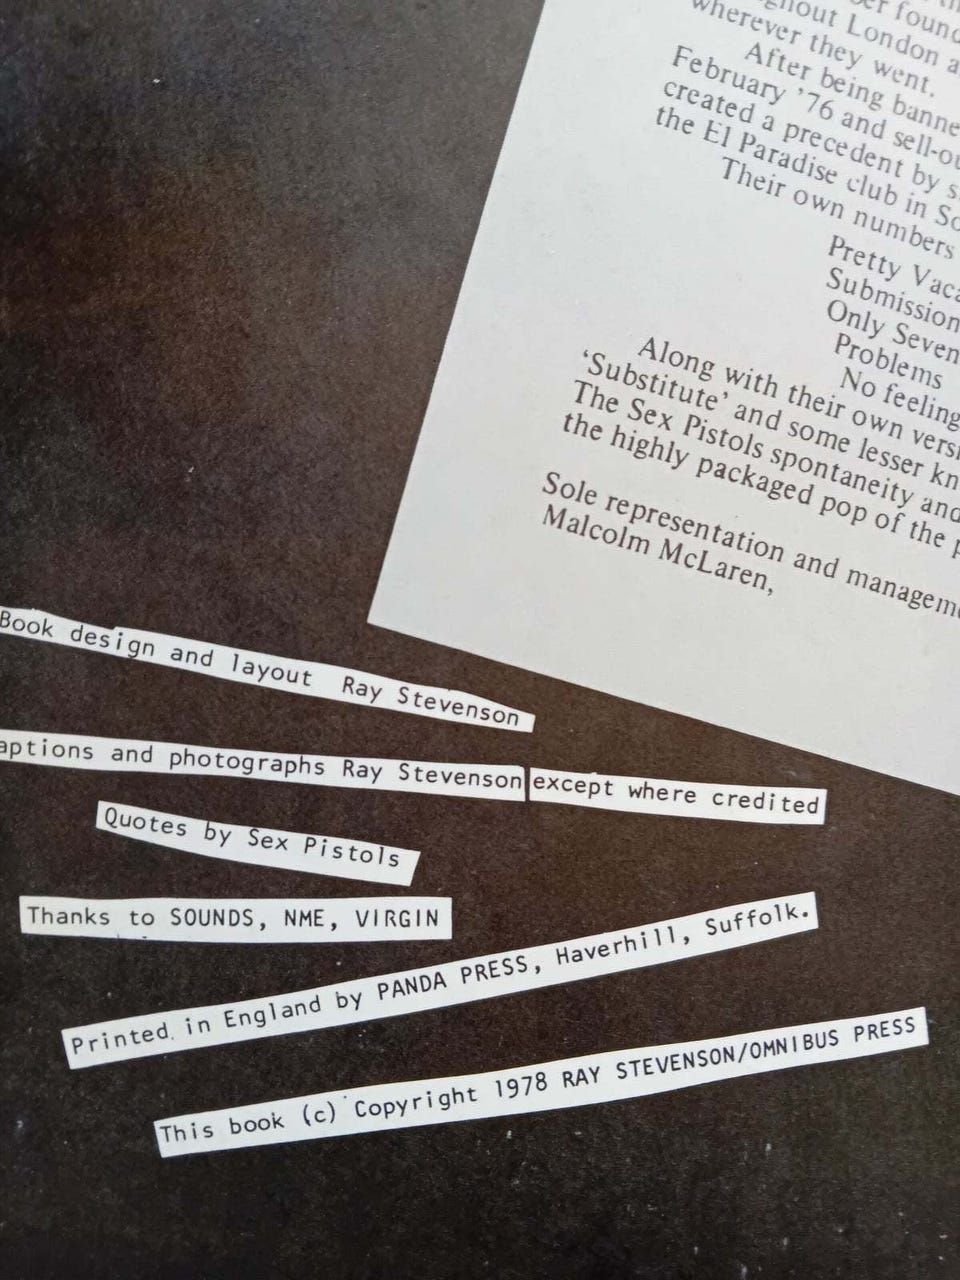 found
London
wherever they went.
After being
February '76 and
created a precedent by
the El Paradise club in
Their own numbers
Pretty
Submission
Only Seven
Problems
No
Along with their own
'Substitute' and some lesser
The Sex Pistols spontaneity and
the highly packaged pop of the
Sole representation and
Malcolm McLaren,
Book design and layout Ray Stevenson
aptions and photographs Ray Stevenson except where credited
Quotes by Sex Pistols
Thanks to SOUNDS, NME, VIRGIN
Printed in England by PANDA PRESS, Haverhill, Suffolk.
This book (c) Copyright 1978 RAY STEVENSON/OMNIBUS PRESS